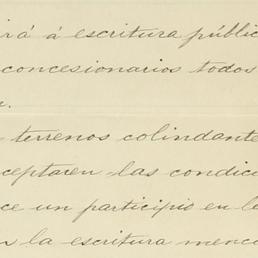 irá á escritura públic
concesionarios todos
terrenos colindante
ceptaren las condic
ce un participio en l
la escritura menc